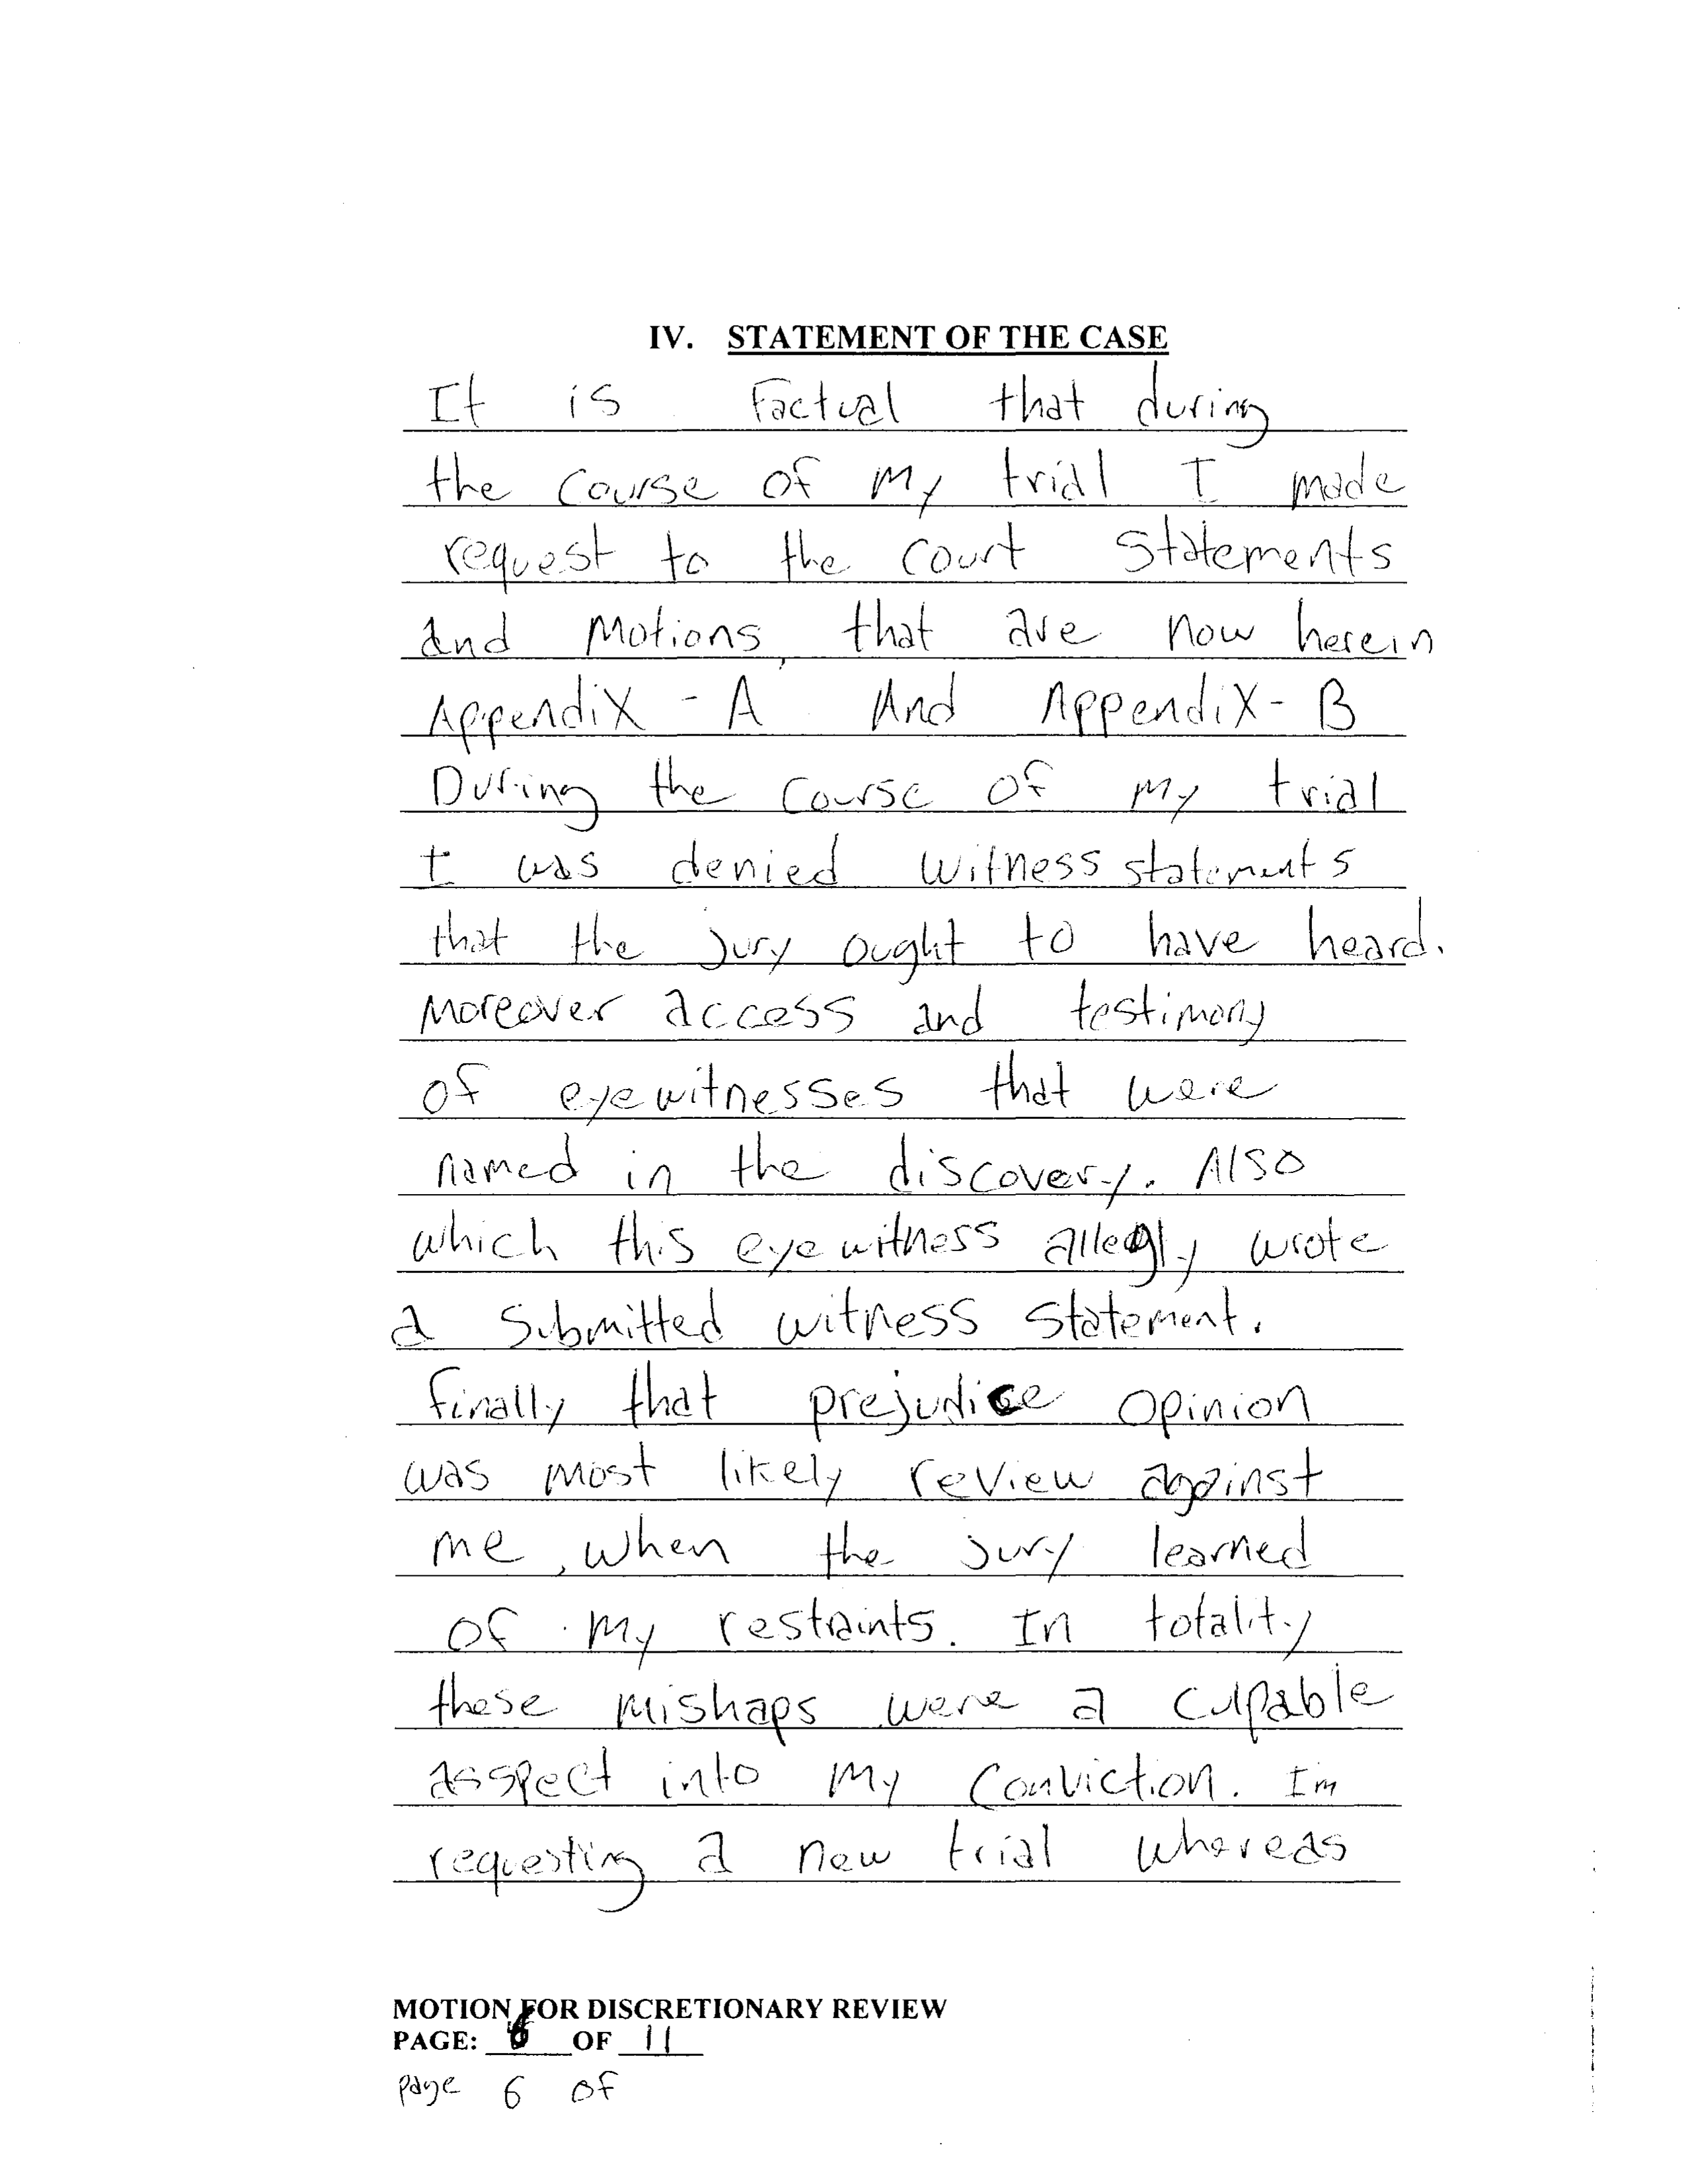 IV. STATEMENT OF THE CASE
It is Factual that during
the course of my trial I made
request to the court statements
and motions, that are now herein
Appendix - A And Appendix - B
During the course of my trial
I was denied witness statements
that the jury ought to have heard.
Moreover access and testimony
of eyewitnesses that were
named in the discovery. Also
which this eyewitness allegly wrote
a submitted witness statement.
Finally that prejudice opinion
was most likely review against
me, when the jury learned
of my restraints. In totality
these mishaps were a culpable
asspect into my conviction. Im
requesting a new trial whereas
MOTION FOR DISCRETIONARY REVIEW
PAGE: 6 OF 11
page 6 of